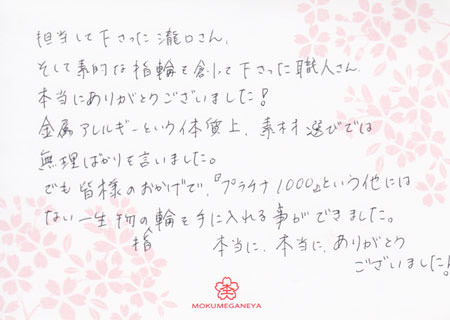 担当して下さった瀧口さん、
そして素的な指輪を創って下さった職人さん
本当にありがとうございました！
金属アレルギーという体質上、素材選びでは
無理ばかりを言いました。
でも皆様のおかげで、『プラチナ1000』という他には
ない一生物の指輪を手に入れる事ができました。
本当に、本当に、ありがとう
ございました！
MOKUMEGANEYA